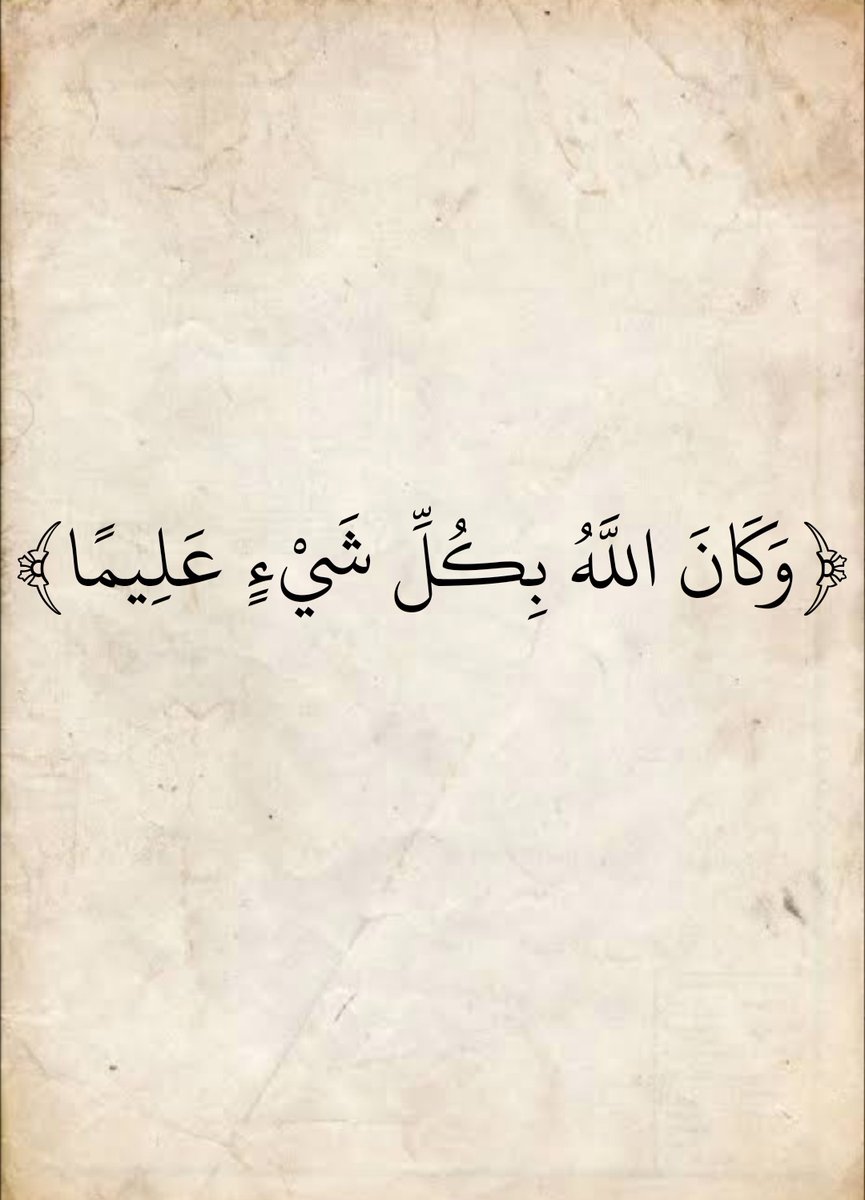 ﴿وَكَانَ اللَّهُ بِكُلِّ شَيْءٍ عَلِيمًا﴾